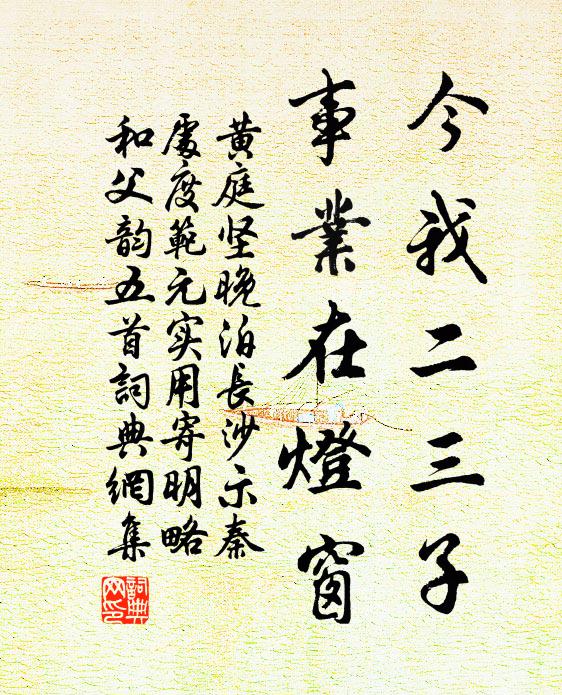 今我二三子
事業在燈窗
黄庭坚晚泊長沙示秦
處度範元实用寄明略
和父韵五首詞典網集
詞典
网印